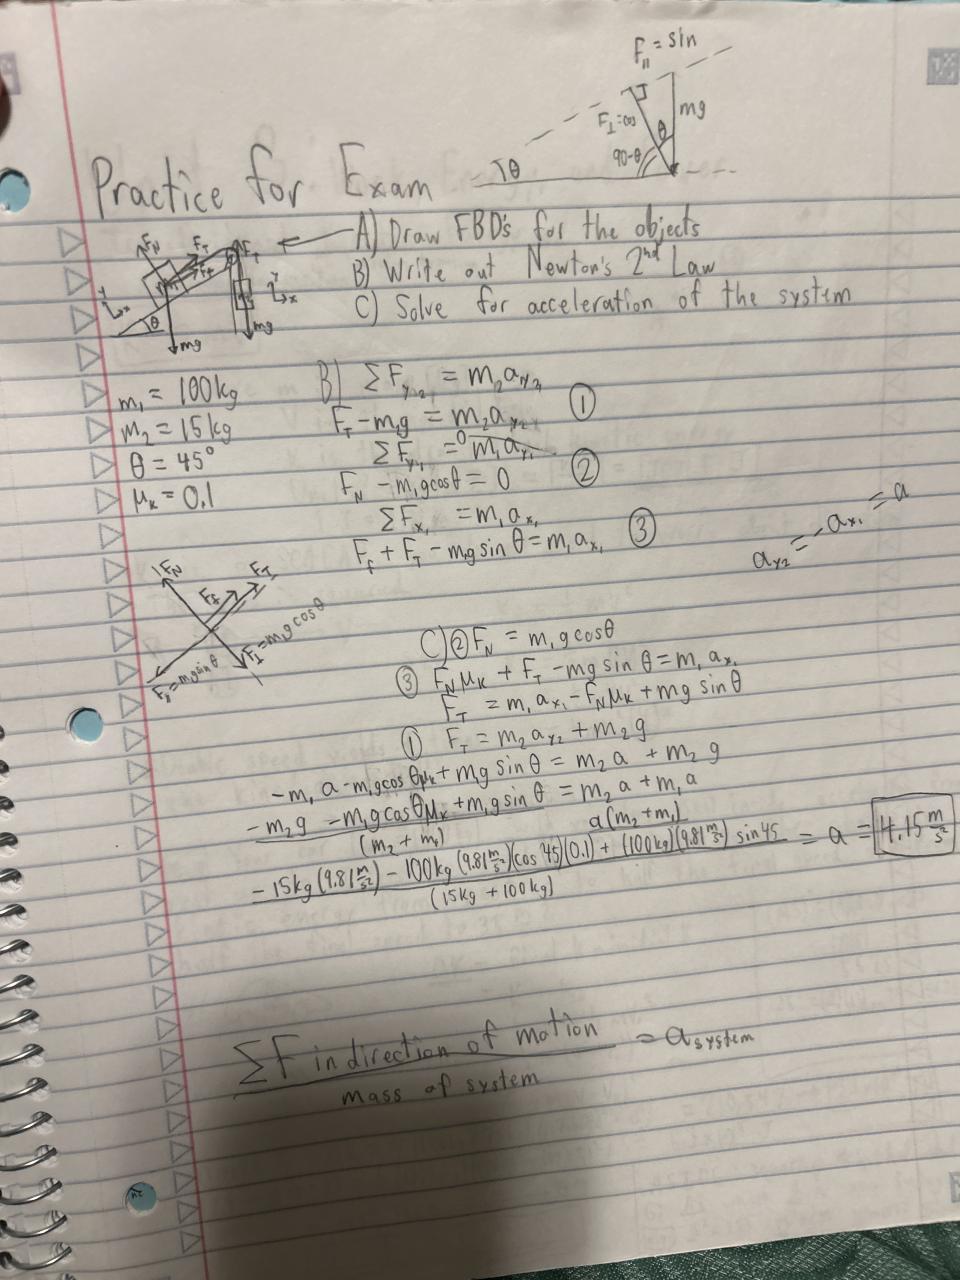 F_∥ = sin
F_⊥ = cos
mg
θ
90-θ
θ
Practice for Exam
A) Draw FBD's for the objects
B) Write out Newton's 2nd Law
C) Solve for acceleration of the system
F_N F_T F_f F_T
y x θ mg mg y x
m₁ = 100kg
m₂ = 15kg
θ = 45°
μ_K = 0.1
B) ΣF_y₂ = m₂a_y₂
F_T - m₂g = m₂a_y₂ ①
ΣF_y₁ = m₁a_y₁ 0
F_N - m₁gcosθ = 0 ②
ΣF_x₁ = m₁a_x₁
F_f + F_T - m₁g sin θ = m₁a_x₁ ③
a_y₂ = a_x₁ = a
F_N F_f F_T
F_∥ = mg sin θ
F_⊥ = m₁g cos θ
C) ② F_N = m₁g cosθ
③ F_N μ_K + F_T - mg sin θ = m₁a_x₁
F_T = m₁a_x₁ - F_N μ_K + mg sin θ
① F_T = m₂a_y₂ + m₂g
-m₁a - m₁gcosθμ_k + m₁g sin θ = m₂a + m₂g
-m₂g - m₁gcosθμ_K + m₁g sin θ = m₂a + m₁a
(m₂ + m₁) a(m₂ + m₁)
-15kg(9.81 m/s²) - 100kg(9.81 m/s²)(cos 45)(0.1) + (100kg)(9.81 m/s²) sin 45 = a = 4.15 m/s²
(15kg + 100kg)
ΣF in direction of motion = a system
mass of system